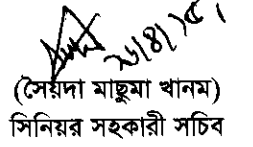 ২১/৪/১৫।
(সৈয়দা মাছুমা খানম)
সিনিয়র সহকারী সচিব